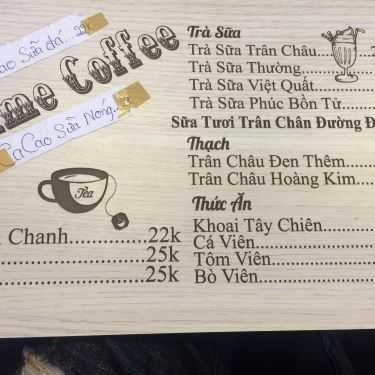 ao Sữa đá.
me Coffee
CaCao Sữa Nóng..
Tea
Chanh..............22k
25k
25k
Trà Sữa
Trà Sữa Trân Châu....
Trà Sữa Thường..........
Trà Sữa Việt Quất.......
Trà Sữa Phúc Bồn Tử..
Sữa Tươi Trân Chân Đường Đ
Thạch
Trân Châu Đen Thêm....
Trân Châu Hoàng Kim....
Thức Ăn
Khoai Tây Chiên..........
Cá Viên.......................
Tôm Viên....................
Bò Viên.......................